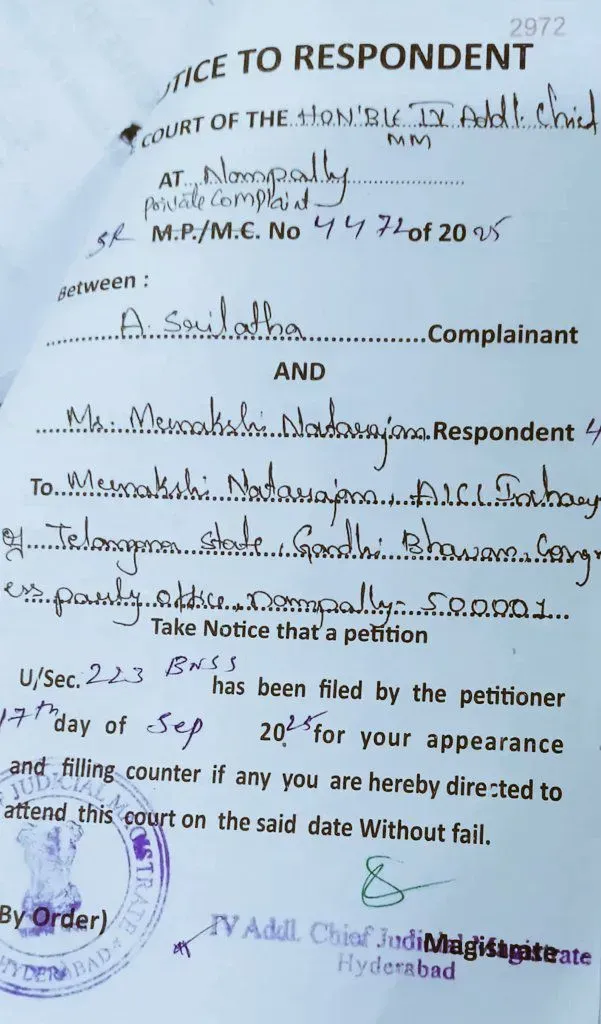 2972
TICE TO RESPONDENT
COURT OF THE HON'BLE IV Addl. Chief
MM
AT Nampally
private Complaint
SR M.P./M.C. No 4472 of 2025
Between :
A. Srilatha Complainant
AND
Ms. Meenakshi Natarajan. Respondent 4
To Meenakshi Natarajan, AICC Incharg
Telangana State, Gandhi Bhavan, Congr
ess party office, Nampally- 500001
Take Notice that a petition
U/Sec. 223 BNSS has been filed by the petitioner
17th day of Sep 2025 for your appearance
and filling counter if any you are hereby directed to
attend this court on the said date Without fail.
JUDICIAL MAGISTRATE
HYDERABAD
By Order)
IV Addl. Chief Judicial Magistrate
Magistrate
Hyderabad